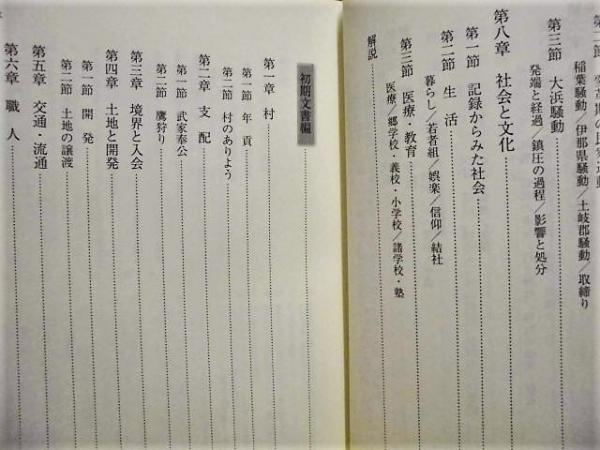 稲葉騒動／伊那県騒動／土岐郡騒動／取締り
第三節 大浜騒動
発端と経過／鎮圧の過程／影響と処分
第八章 社会と文化
第一節 記録からみた社会
第二節 生活
暮らし／若者組／娯楽／信仰／結社
第三節 医療・教育
医療／郷学校・義校・小学校／諸学校・塾
解説
初期文書編
第一章 村
第一節 年貢
第二節 村のありよう
第二章 支配
第一節 武家奉公
第二節 鷹狩り
第三章 境界と入会
第四章 土地と開発
第一節 開発
第二節 土地の譲渡
第五章 交通・流通
第六章 職人